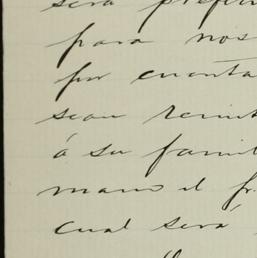 será prefer
para nos
por cuenta
sean remit
á su famil
mano el fr
cual será